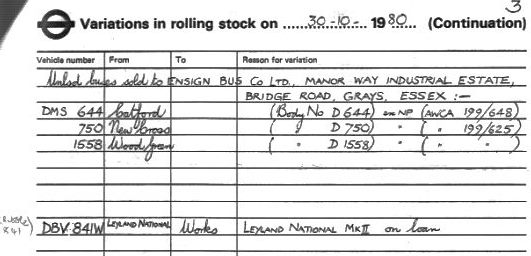 3
Variations in rolling stock on ......30-10-... 1980... (Continuation)
Vehicle number From To Reason for variation
Unlsd buses sold to ENSIGN BUS Co LTD., MANOR WAY INDUSTRIAL ESTATE,
BRIDGE ROAD, GRAYS, ESSEX :-
DMS 644 Catford (Body No D644) ex NP (AWCA 199/648)
750 New Cross ( " D750) " ( " 199/625)
1558 Wood Green ( " D1558) " ( " " )
841) DBV 841W LEYLAND NATIONAL Works LEYLAND NATIONAL MK II on loan